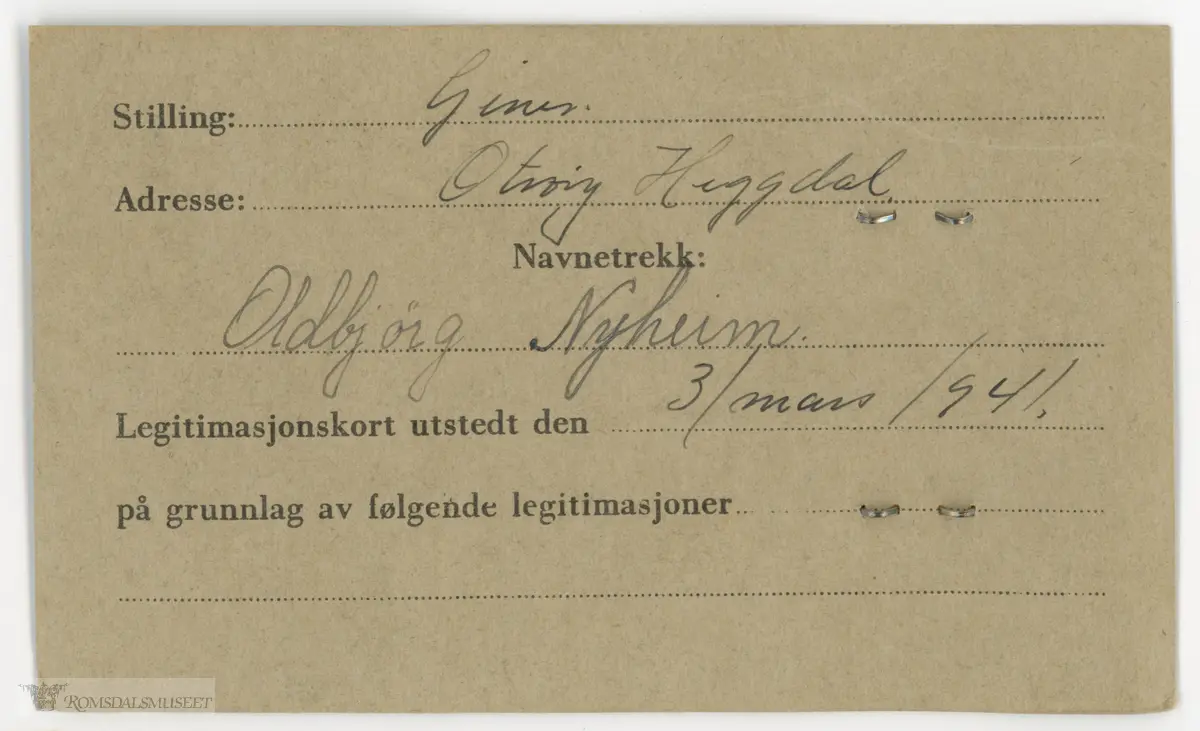 Stilling: Giner.
Adresse: Otrøy Heggdal.
Navnetrekk:
Oldbjörg Nyheim.
Legitimasjonskort utstedt den 3/mars/941.
på grunnlag av følgende legitimasjoner
ROMSDALSMUSEET